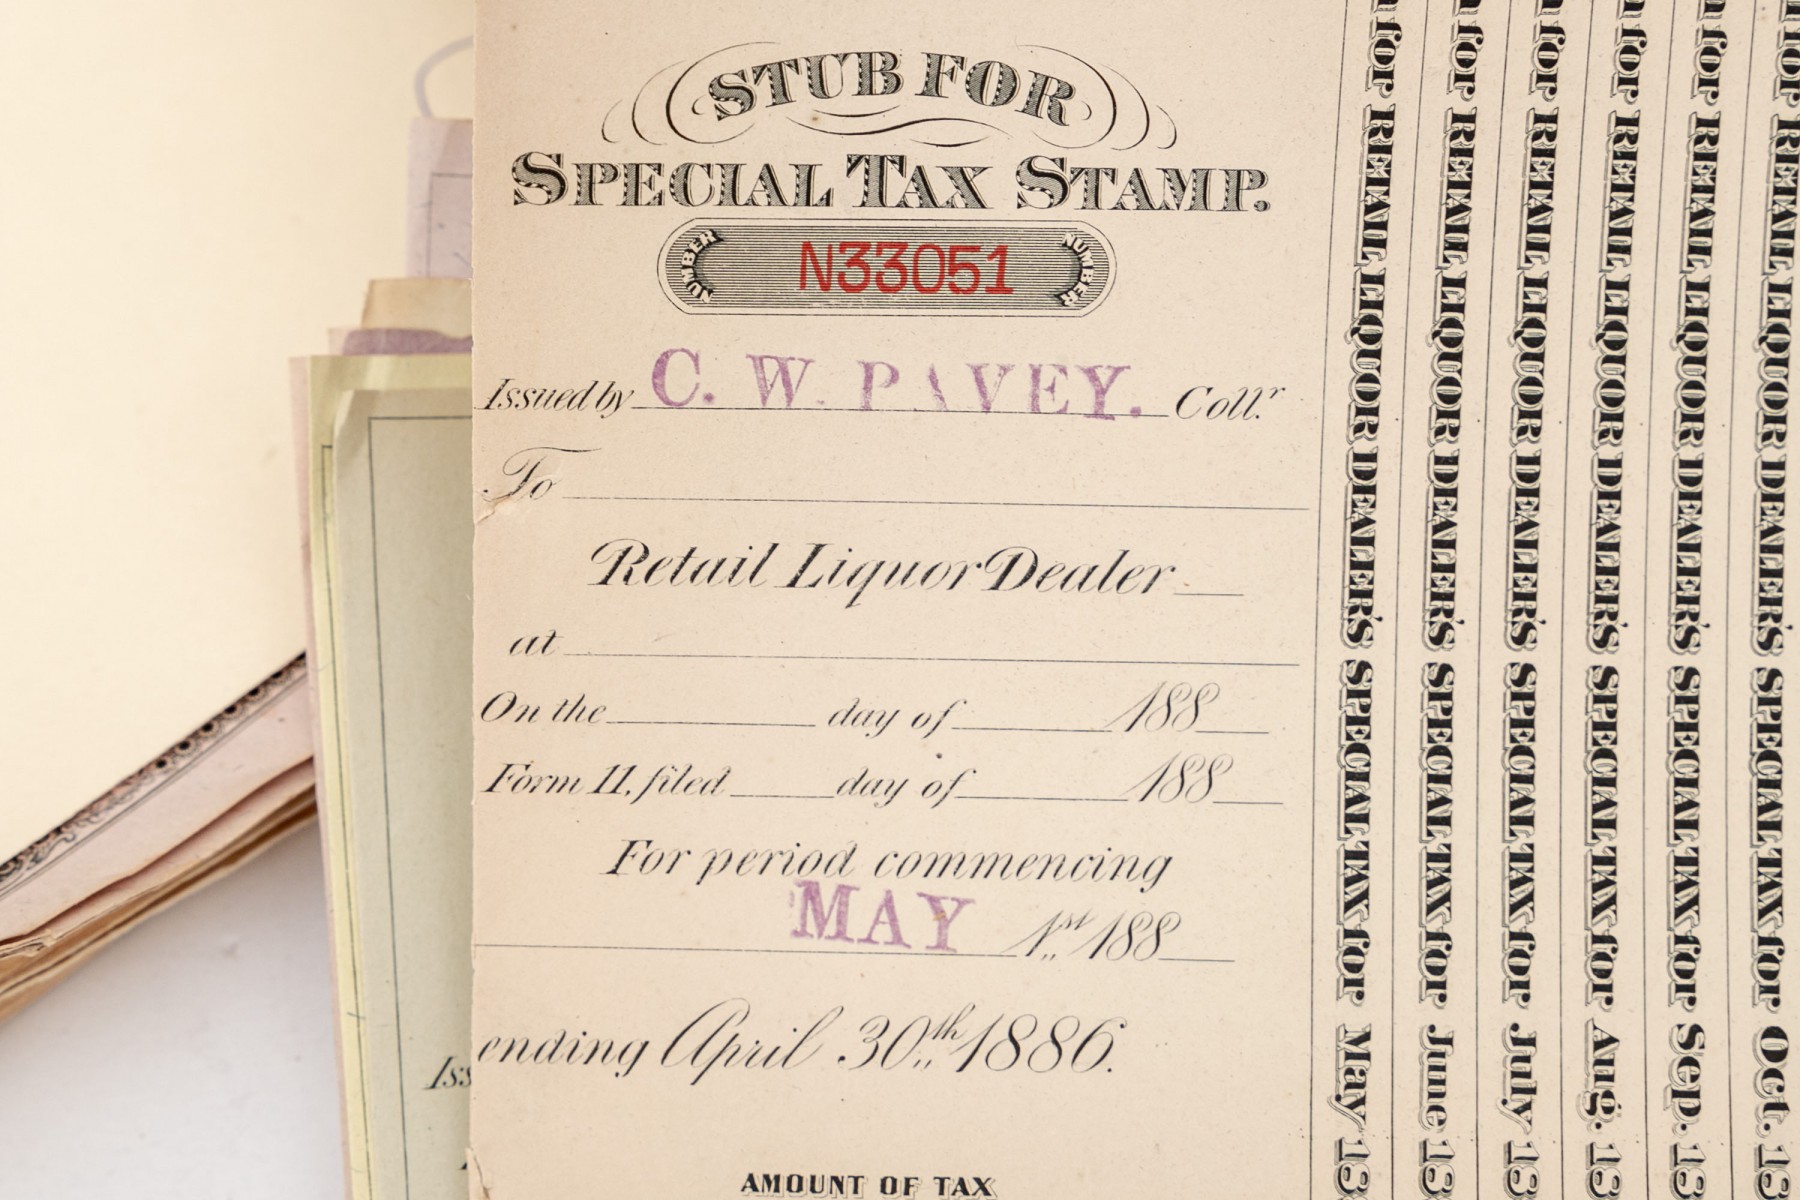 STUB FOR
SPECIAL TAX STAMP.
NUMBER N33051 NUMBER
Issued by C. W. PAVEY. Coll.r
To
Retail Liquor Dealer
at
On the day of 188
Form 11, filed day of 188
For period commencing
MAY 1st 188
ending April 30th 1886.
AMOUNT OF TAX
for RETAIL LIQUOR DEALER'S SPECIAL TAX for May 18
for RETAIL LIQUOR DEALER'S SPECIAL TAX for June 18
for RETAIL LIQUOR DEALER'S SPECIAL TAX for July 18
for RETAIL LIQUOR DEALER'S SPECIAL TAX for Aug. 18
for RETAIL LIQUOR DEALER'S SPECIAL TAX for Sep. 18
for RETAIL LIQUOR DEALER'S SPECIAL TAX for Oct. 18
Iss